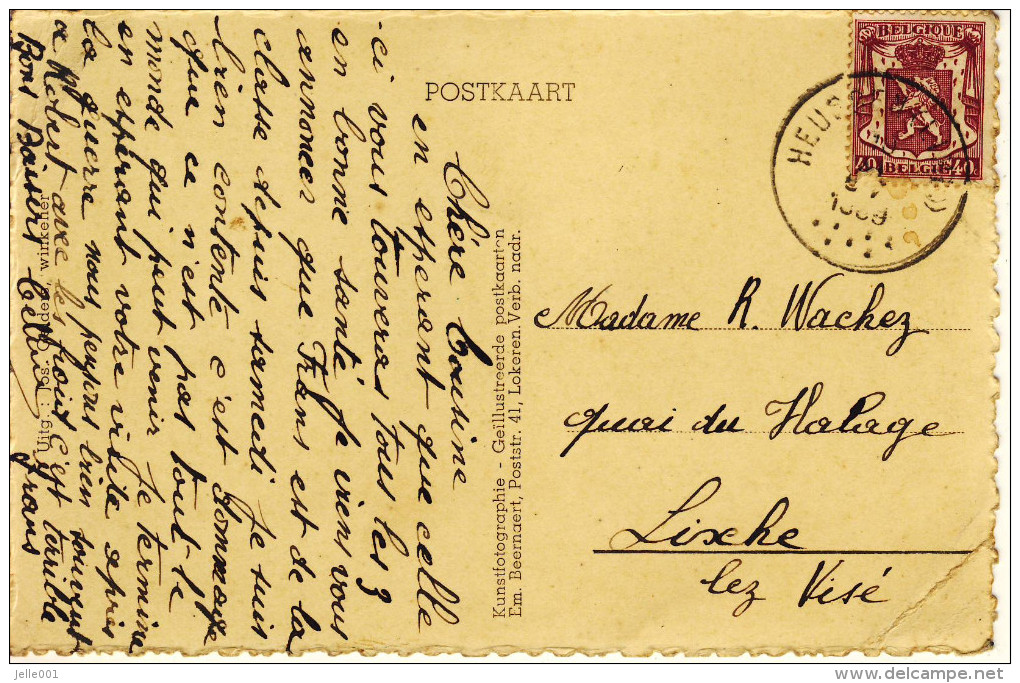 POSTKAART
BELGIQUE
40 BELGIË 40
HEUS
1939
Chère Cousine
en espérant que celle
-ci vous touveras tous les 3
en bonne santé je viens vous
annoncer que Frans est de la
classe depuis samedi Je suis
bien contente c'est dommage
que ce n'est pas tout le
monde qui peut venir Je termine
en espérant votre visite après
la guerre nous pensons bien souvent
a Robert avec les froid c'est terrible
Bons Baiser Frans
Uitg.: Jos. winkelier
Kunstfotographie - Geïllustreerde postkaarten
Em. Beernaert, Poststr. 41, Lokeren. Verb. nadr.
Madame R. Wachez
quai du Halage
Lixhe
lez Visé
jelle001
www.delcampe.net